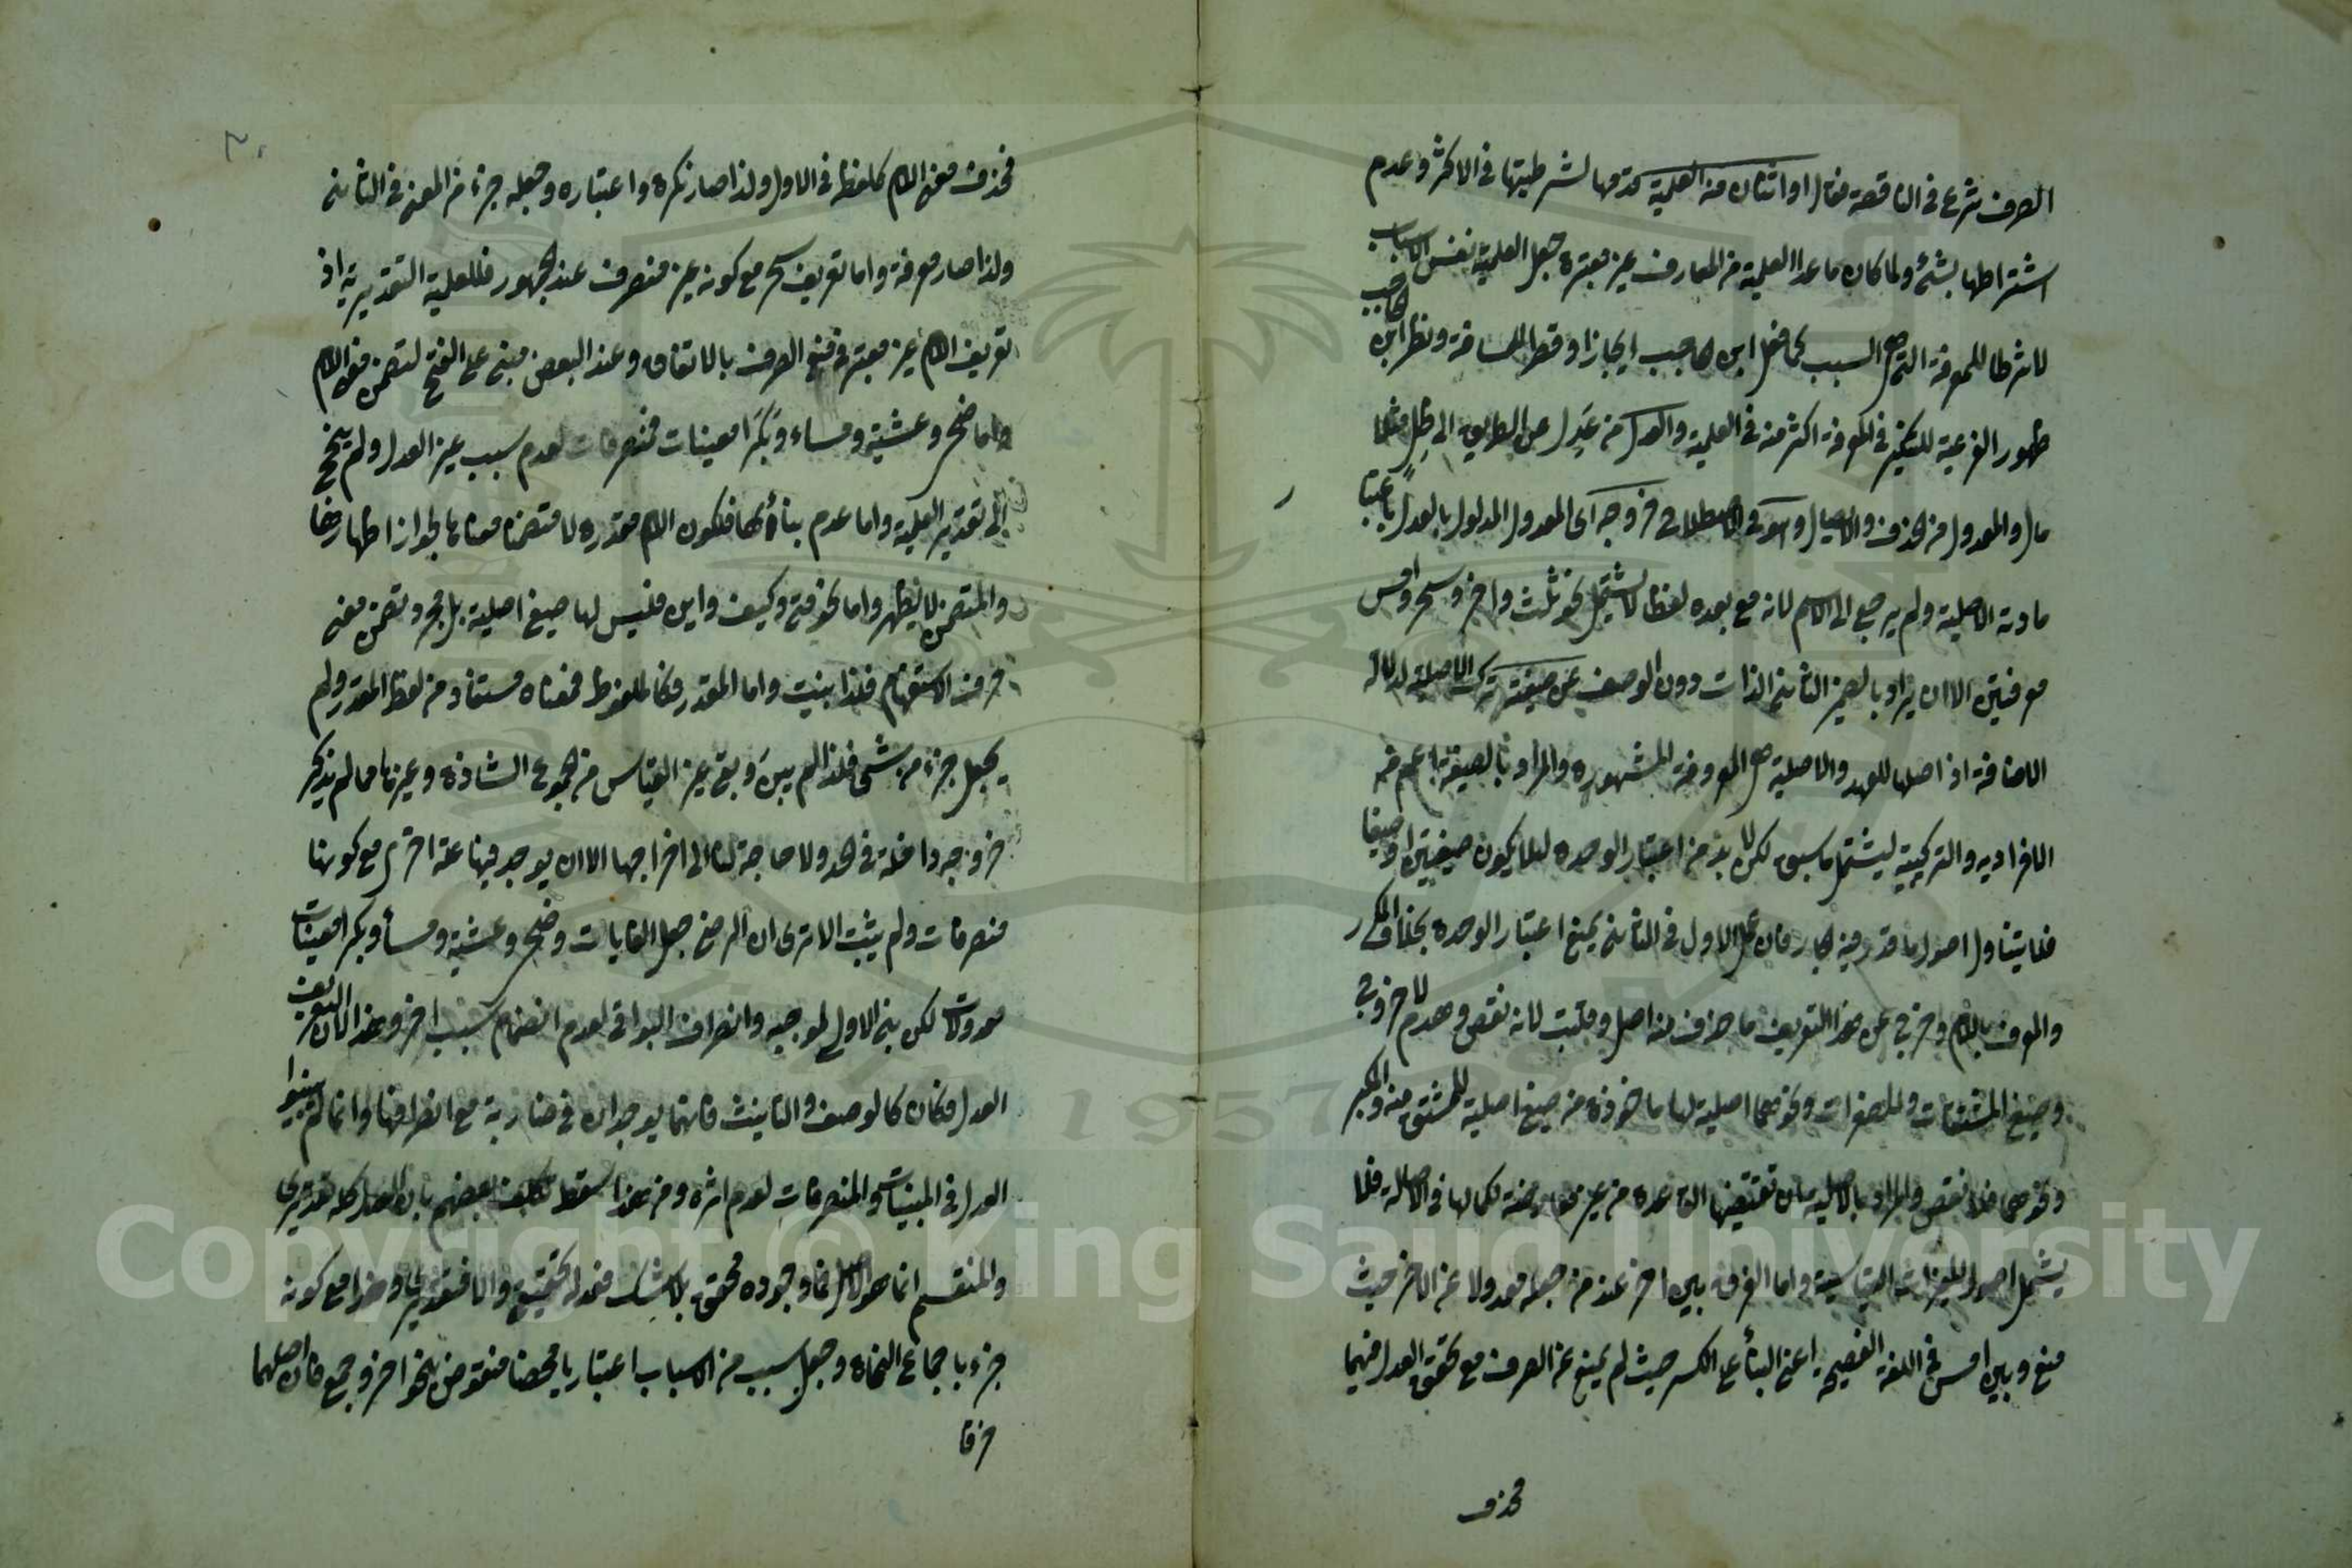 الصرف شرع في الناقصة فقال او اثنان منه العلمية قدمها لشرطيتها في الاكثر وعدم
اشتراطها بشئ ولما كان ما عدا العلمية من المعارف غير معتبرة جعل العلمية نفس الاسباب
لا شرطا للمعرفة التي هي السبب كما فعل ابن الحاجب ايجازا وقصرا للمسافة ونظر ابن الحاجب
ظهور الفرعية للتنكير في المعرفة اكثر منه في العلمية والعدل من عدل عن الطريق الى
مال والمعدول من الحذف والايصال وهو في الاصطلاح خروجه اى المعدول المدلول بالعدل باعتبار
مادته الاصلية ولم يرجع الى الاسم لانه مع بعده لفظا لا يشتمل نحو ثلث واخر وسحر وامس
معرفتين الا ان يراد بالضمير الثاني الذات دون الوصف عن صيغته تركه الاصلية لدلالة
الاضافة اذ اصلها للعهد والاصلية هي المعروفة المشهورة والمراد بالصيغة اعم من
الافرادية والتركيبية ليشتمل ما سبق لكن لا بد من اعتبار الوحدة لئلا يكون صيغتين او صيغا
فلا يتناول اصول ما قدر فيه الجار فان عمل الاول في الثاني يمنع اعتبار الوحدة بخلاف المكرر
والمعرف باللام وخرج عن هذا التعريف ما حذف منه اصل وقلبت لانه نقص وهدم لا خروج
وصيغ المشتقات والمصغرات ونحوهما اصلية لها ماخوذة من صيغ اصلية للمشتق منه والمكبر
ونحوهما فلا نقص والمراد بالاصلية ان تقتضيها القاعدة من غير معارضة لكمالها في الاصالة فلا
يشمل اصول المغيرات القياسية واما الفرق بين اخر عند من جعله معدولا عن الاخر حيث
منع وبين امس في اللغة الفصيحة اعني البناء على الكسر حيث لم يمنع عن الصرف مع تحقق العدل فيهما
فحذف
فحذف معنى اللام كلفظه في الاول ولذا صار نكرة واعتباره وجعله جزءا من المعنى في الثاني
ولذا صار معرفة واما تعريف سحر مع كونه غير منصرف عند الجمهور فللعلمية التقديرية اذ
تعريف اللام غير معتبر في منع الصرف بالاتفاق وعند البعض مبني على الفتح لتضمن معنى اللام
واما ضحى وعشية ومساء وبكرا معينات فمنصرفات لعدم سبب غير العدل ولم يحتج
الى تقدير العلمية واما عدم بنائها فلكون اللام مقدرة لا متضمنا معناها لجواز اظهارها
والمتضمن لا يظهر واما نحو متى وكيف واين فليس لها صيغ اصلية بل مجرد تضمن معنى
حرف الاستفهام فلذا بنيت واما المقدر فكالملفوظ فمعناه مستفاد من لفظ المقدر ولم
يجعل جزءا من شئ فلذا لم يبن وبقي غير القياس من الجموع الشاذة وغيرها مما لم يذكر
خروجه داخلة في الحد ولا حاجة لنا الى اخراجها الا ان يوجد فيها علة اخرى مع كونها
منصرفات ولم يثبت الا ترى ان الرضي جعل الغايات وضحى وعشية ومساء وبكرا معينات
معدولات لكن بني الاول لموجبه وانصراف البواقي لعدم انضمام سبب اخر وهذا لان التعريف
العدل فكان كالوصف والتانيث فانهما يوجدان في ضاربة مع انصرافها وانما لم يبينوا
العدل في المبنيات والمنصرفات لعدم اثره ومن هذا سقط تكلف بعضهم بان العدل كله تقديرى
والمنقسم انما هو الاصل فما وجوده محقق بلا شك فعدله تحقيقي والا فتقديرى وهذا مع كونه
جزءا باجماع النحاة وجعل سبب من الاسباب اعتباريا محضا منقوض بنحو اخر وجمع فان اصلهما
حرفا